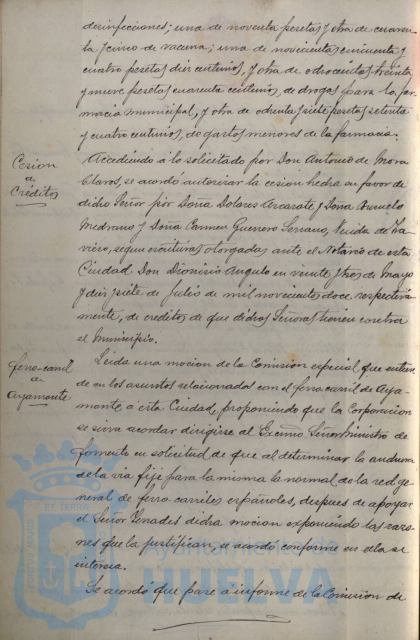 desinfecciones; una de noventa pesetas y otra de cuaren-
ta y cinco de vacuna; una de novecientas cincuenta y
cuatro pesetas diez centimos, y otra de ochocientas treinta
y nueve pesetas cuarenta centimos, de drogas para la far-
macia municipal, y otra de ochenta y siete pesetas setenta
y cuatro centimos, de gastos menores de la farmacia.
Cesion
de
Créditos
Accediendo á lo solicitado por Don Antonio de Mora
Claros, se acordó autorizar la cesion hecha en favor de
dicho Señor por Doña Dolores y Doña Consuelo
Medrano y Doña Carmen Guerrero Serrano, viuda de
segun escrituras otorgadas ante el Notario de esta
Ciudad Don Dionisio Angulo en veinte y tres de Mayo
y diez y siete de Julio de mil novecientos doce respectiva-
mente, de creditos de que dichas Señoras tienen contra
el Municipio.
ferro-carril
de
Ayamonte
Leida una mocion de la Comision especial que entien-
de en los asuntos relacionados con el ferro carril de Aya-
monte á esta Ciudad, proponiendo que la Corporacion
se sirva acordar dirigirse al Excmo Señor Ministro de
fomento en solicitud de que al determinar la anchura
de la via fije para la misma la normal de la red ge-
neral de ferro-carriles españoles, despues de apoyar
el Señor dicha mocion exponiendo las razo-
nes que la justifican, se acordó conforme en ella se
interesa.
Se acordó que pase a informe de la Comision de
Ayuntamiento de
HUELVA